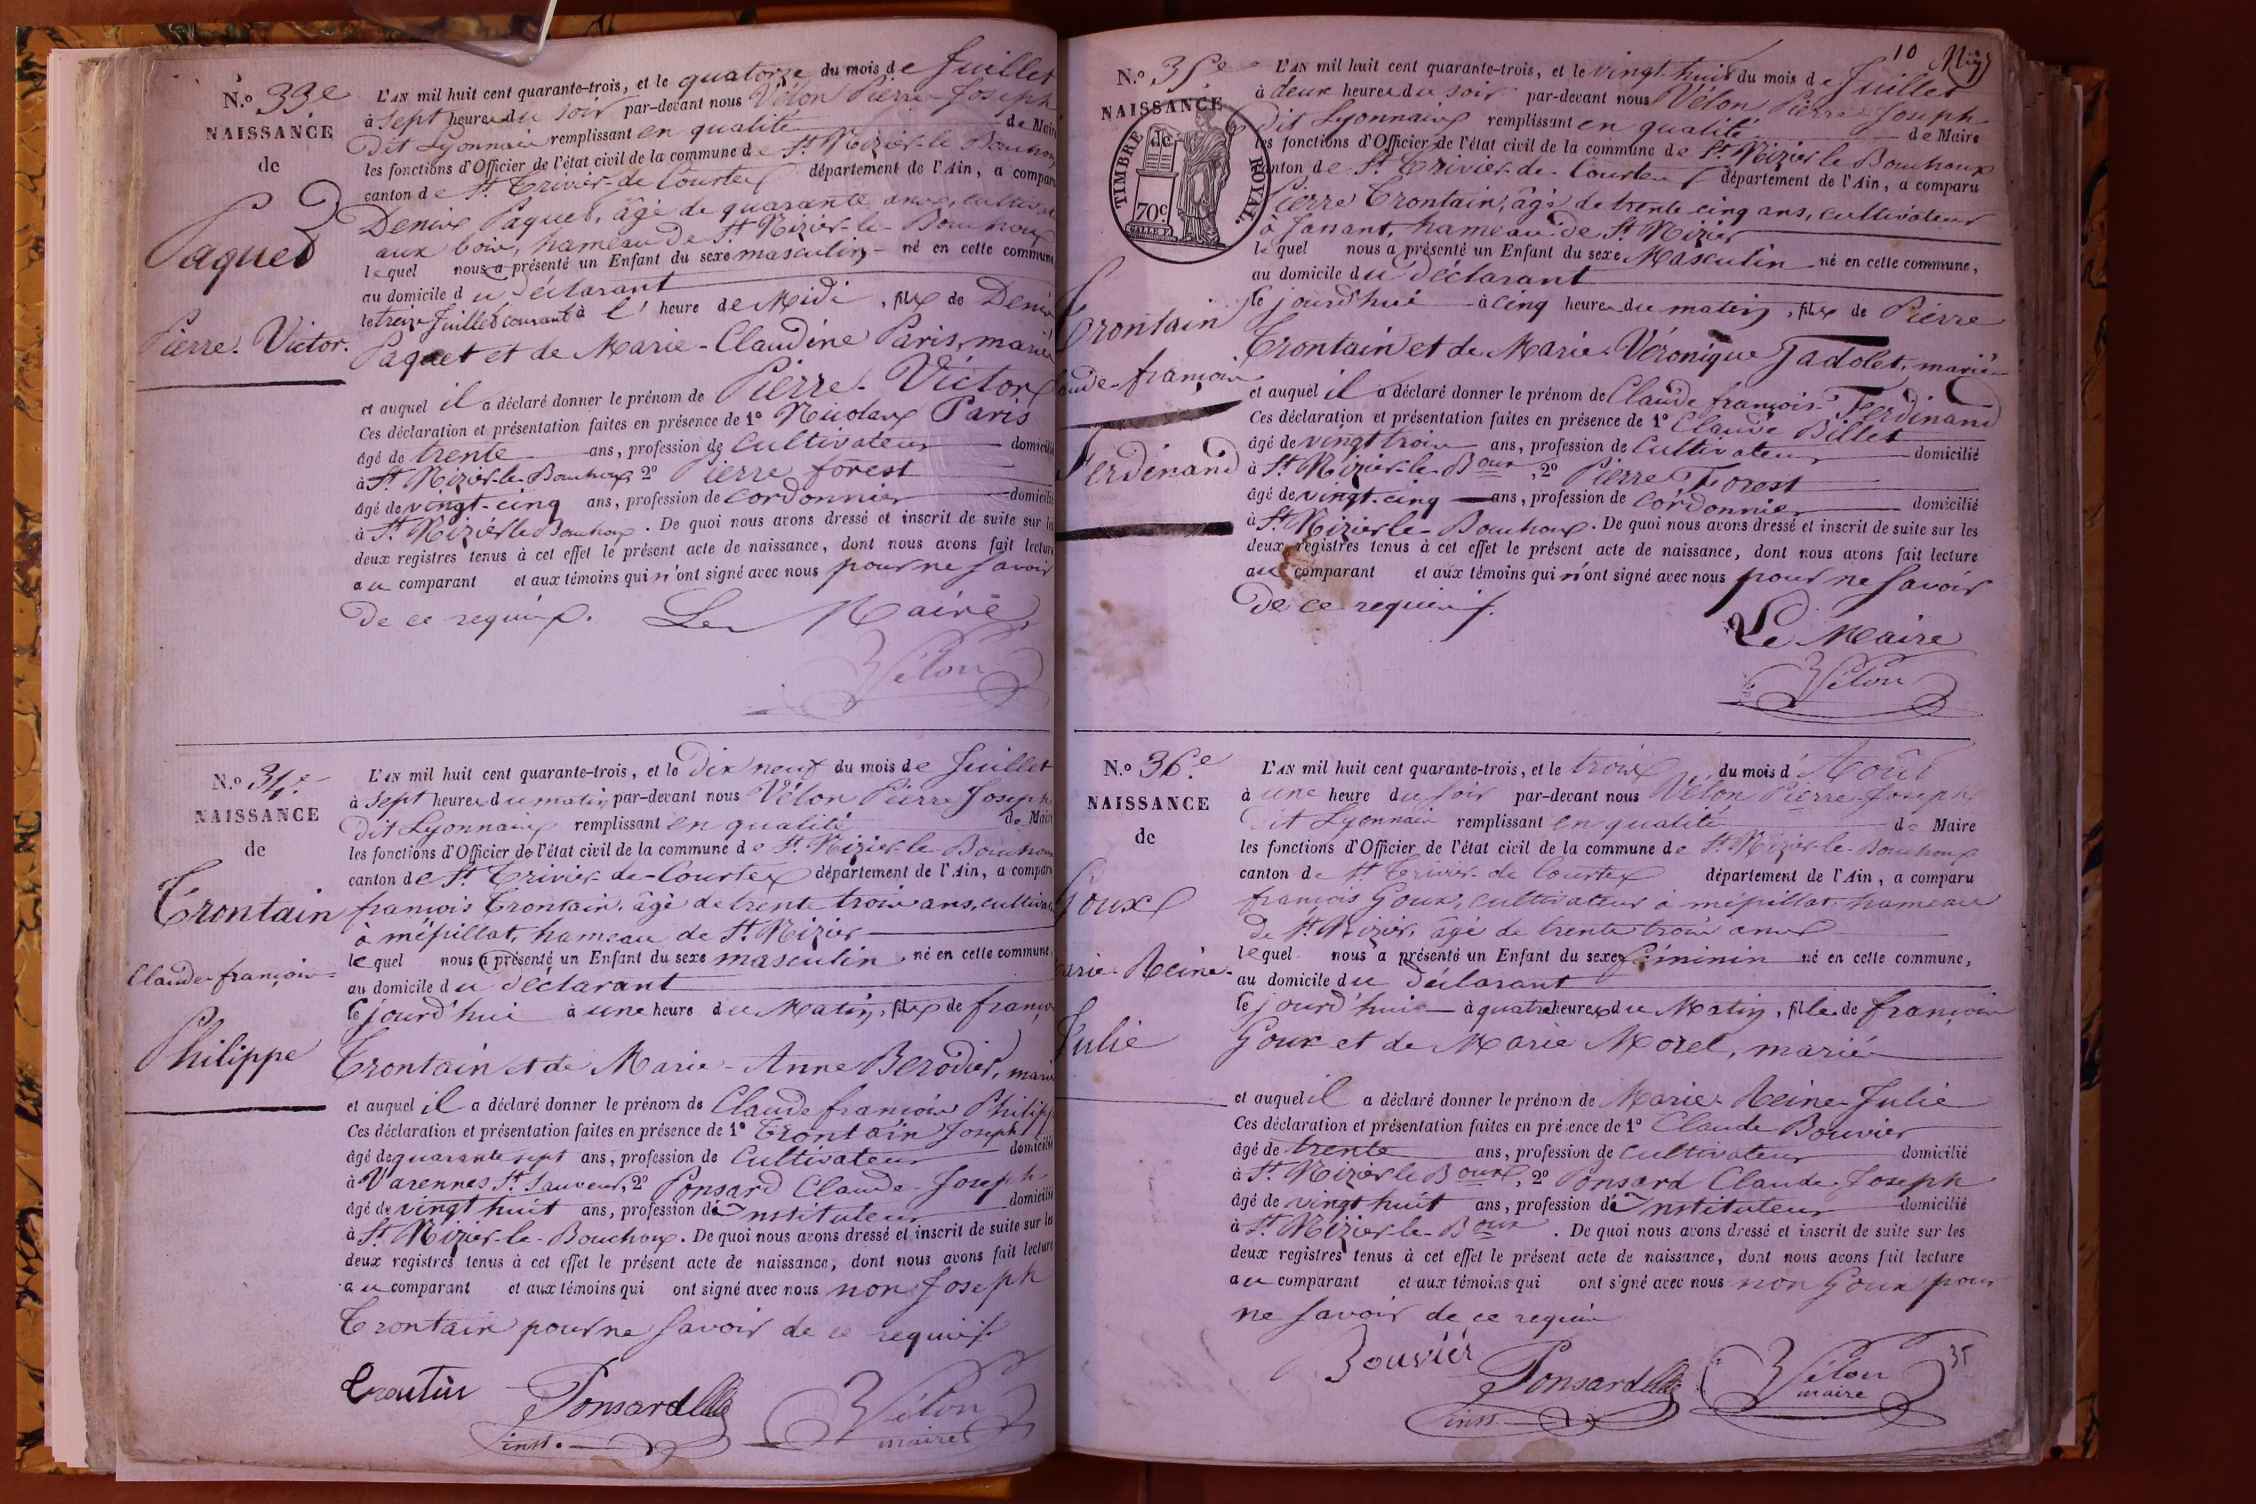 N.o 33e
NAISSANCE
de
Paquet
Pierre-Victor.
L'AN mil huit cent quarante-trois, et le quatorze du mois de Juillet
à sept heures du soir par-devant nous Vélon Pierre-Joseph
Dit Lyonnais remplissant en qualité de Maire
les fonctions d'Officier de l'état civil de la commune de St. Nizier-le Bouchoux
canton de St. Trivier-de Courtes département de l'Ain, a comparu
Denis Paquet, âgé de quarante ans, cultivat
aux bois, hameau de St. Nizier-le-Bouchoux
lequel nous a présenté un Enfant du sexe masculin né en cette commune
au domicile du déclarant
le treize Juillet courant à l' heure de Midi, fils de Denis
Paquet et de Marie-Claudine Paris, mariés
et auquel il a déclaré donner le prénom de Pierre-Victor
Ces déclaration et présentation faites en présence de 1o Nicolas Paris
âgé de trente ans, profession de cultivateur domicilié
à St. Nizier-le-Bouchoux 2o Pierre forest
âgé de vingt-cinq ans, profession de cordonnier domicilié
à St. Nizier le Bouchoux. De quoi nous avons dressé et inscrit de suite sur les
deux registres tenus à cet effet le présent acte de naissance, dont nous avons fait lecture
au comparant et aux témoins qui n'ont signé avec nous pour ne savoir
de ce requis. Le Maire
Vélon
N.o 34e
NAISSANCE
de
Trontain
Claude-françois
Philippe
L'AN mil huit cent quarante-trois, et le dix neuf du mois de Juillet
à sept heures du matin par-devant nous Vélon Pierre Joseph
Dit Lyonnais remplissant en qualité de Maire
les fonctions d'Officier de l'état civil de la commune de St. Nizier-le-Bouchoux
canton de St. Trivier-de-Courtes département de l'Ain, a comparu
françois Trontain, âgé de trente trois ans, cultivat
à mépillat, hameau de St. Nizier
lequel nous a présenté un Enfant du sexe masculin, né en cette commune,
au domicile du déclarant
ce jourd'hui à une heure du Matin, fils de françois
Trontain et de Marie-Anne Berodier, mariés
et auquel il a déclaré donner le prénom de Claude françois Philippe
Ces déclaration et présentation faites en présence de 1o Trontain Joseph
âgé de quarante sept ans, profession de Cultivateur domicilié
à Varennes St. Sauveur, 2o Ponsard Claude-Joseph
âgé de vingt huit ans, profession d'Instituteur domicilié
à St. Nizier-le-Bouchoux. De quoi nous avons dressé et inscrit de suite sur les
deux registres tenus à cet effet le présent acte de naissance, dont nous avons fait lecture
au comparant et aux témoins qui ont signé avec nous non Joseph
Trontain pour ne savoir de ce requis.
Trontin Ponsard Vélon
inst. maire
10
N.o 35e
NAISSANCE
de
TIMBRE ROYAL.
70c
Trontain
aude-françois
Ferdinand
L'AN mil huit cent quarante-trois, et le vingt huit du mois de Juillet
à deux heures du soir par-devant nous Vélon Pierre-Joseph
Dit Lyonnais remplissant en qualité de Maire
les fonctions d'Officier de l'état civil de la commune de St. Nizier le Bouchoux
canton de St. Trivier-de-Courtes département de l'Ain, a comparu
Pierre Trontain, âgé de trente cinq ans, cultivateur
à Jassant, hameau de St. Nizier
lequel nous a présenté un Enfant du sexe Masculin né en cette commune,
au domicile du déclarant
ce jourd'hui à cinq heures du matin, fils de Pierre
Trontain et de Marie-Véronique Jadolet, mariés
et auquel il a déclaré donner le prénom de Claude françois-Ferdinand
Ces déclaration et présentation faites en présence de 1o Claude Billet
âgé de vingt trois ans, profession de Cultivateur domicilié
à St. Nizier-le-Boux, 2o Pierre Forest
âgé de vingt-cinq ans, profession de cordonnier domicilié
à St. Nizier le-Bouchoux. De quoi nous avons dressé et inscrit de suite sur les
deux registres tenus à cet effet le présent acte de naissance, dont nous avons fait lecture
au comparant et aux témoins qui n'ont signé avec nous pour ne savoir
de ce requis.
Le Maire
Vélon
N.o 36e
NAISSANCE
de
Goux
arie-Reine-
Julie
L'AN mil huit cent quarante-trois, et le trois du mois d'Août
à une heure du soir par-devant nous Vélon Pierre-Joseph
Dit Lyonnais remplissant en qualité de Maire
les fonctions d'Officier de l'état civil de la commune de St. Nizier-le-Bouchoux
canton de St. Trivier-de Courtes département de l'Ain, a comparu
françois Goux, cultivateur à mépillat, hameau
de St. Nizier, âgé de trente trois ans
lequel nous a présenté un Enfant du sexe féminin né en cette commune,
au domicile du déclarant
ce jourd'hui à quatre heures du Matin, fille de françois
Goux et de Marie Morel, mariés
et auquel il a déclaré donner le prénom de Marie-Reine-Julie
Ces déclaration et présentation faites en présence de 1o Claude Bouvier
âgé de trente ans, profession de cultivateur domicilié
à St. Nizier le Boux, 2o Ponsard Claude-Joseph
âgé de vingt huit ans, profession d'Instituteur domicilié
à St. Nizier-le-Boux. De quoi nous avons dressé et inscrit de suite sur les
deux registres tenus à cet effet le présent acte de naissance, dont nous avons fait lecture
au comparant et aux témoins qui ont signé avec nous non Goux pour
ne savoir de ce requis
Bouvier Ponsard Vélon 35
inst. maire